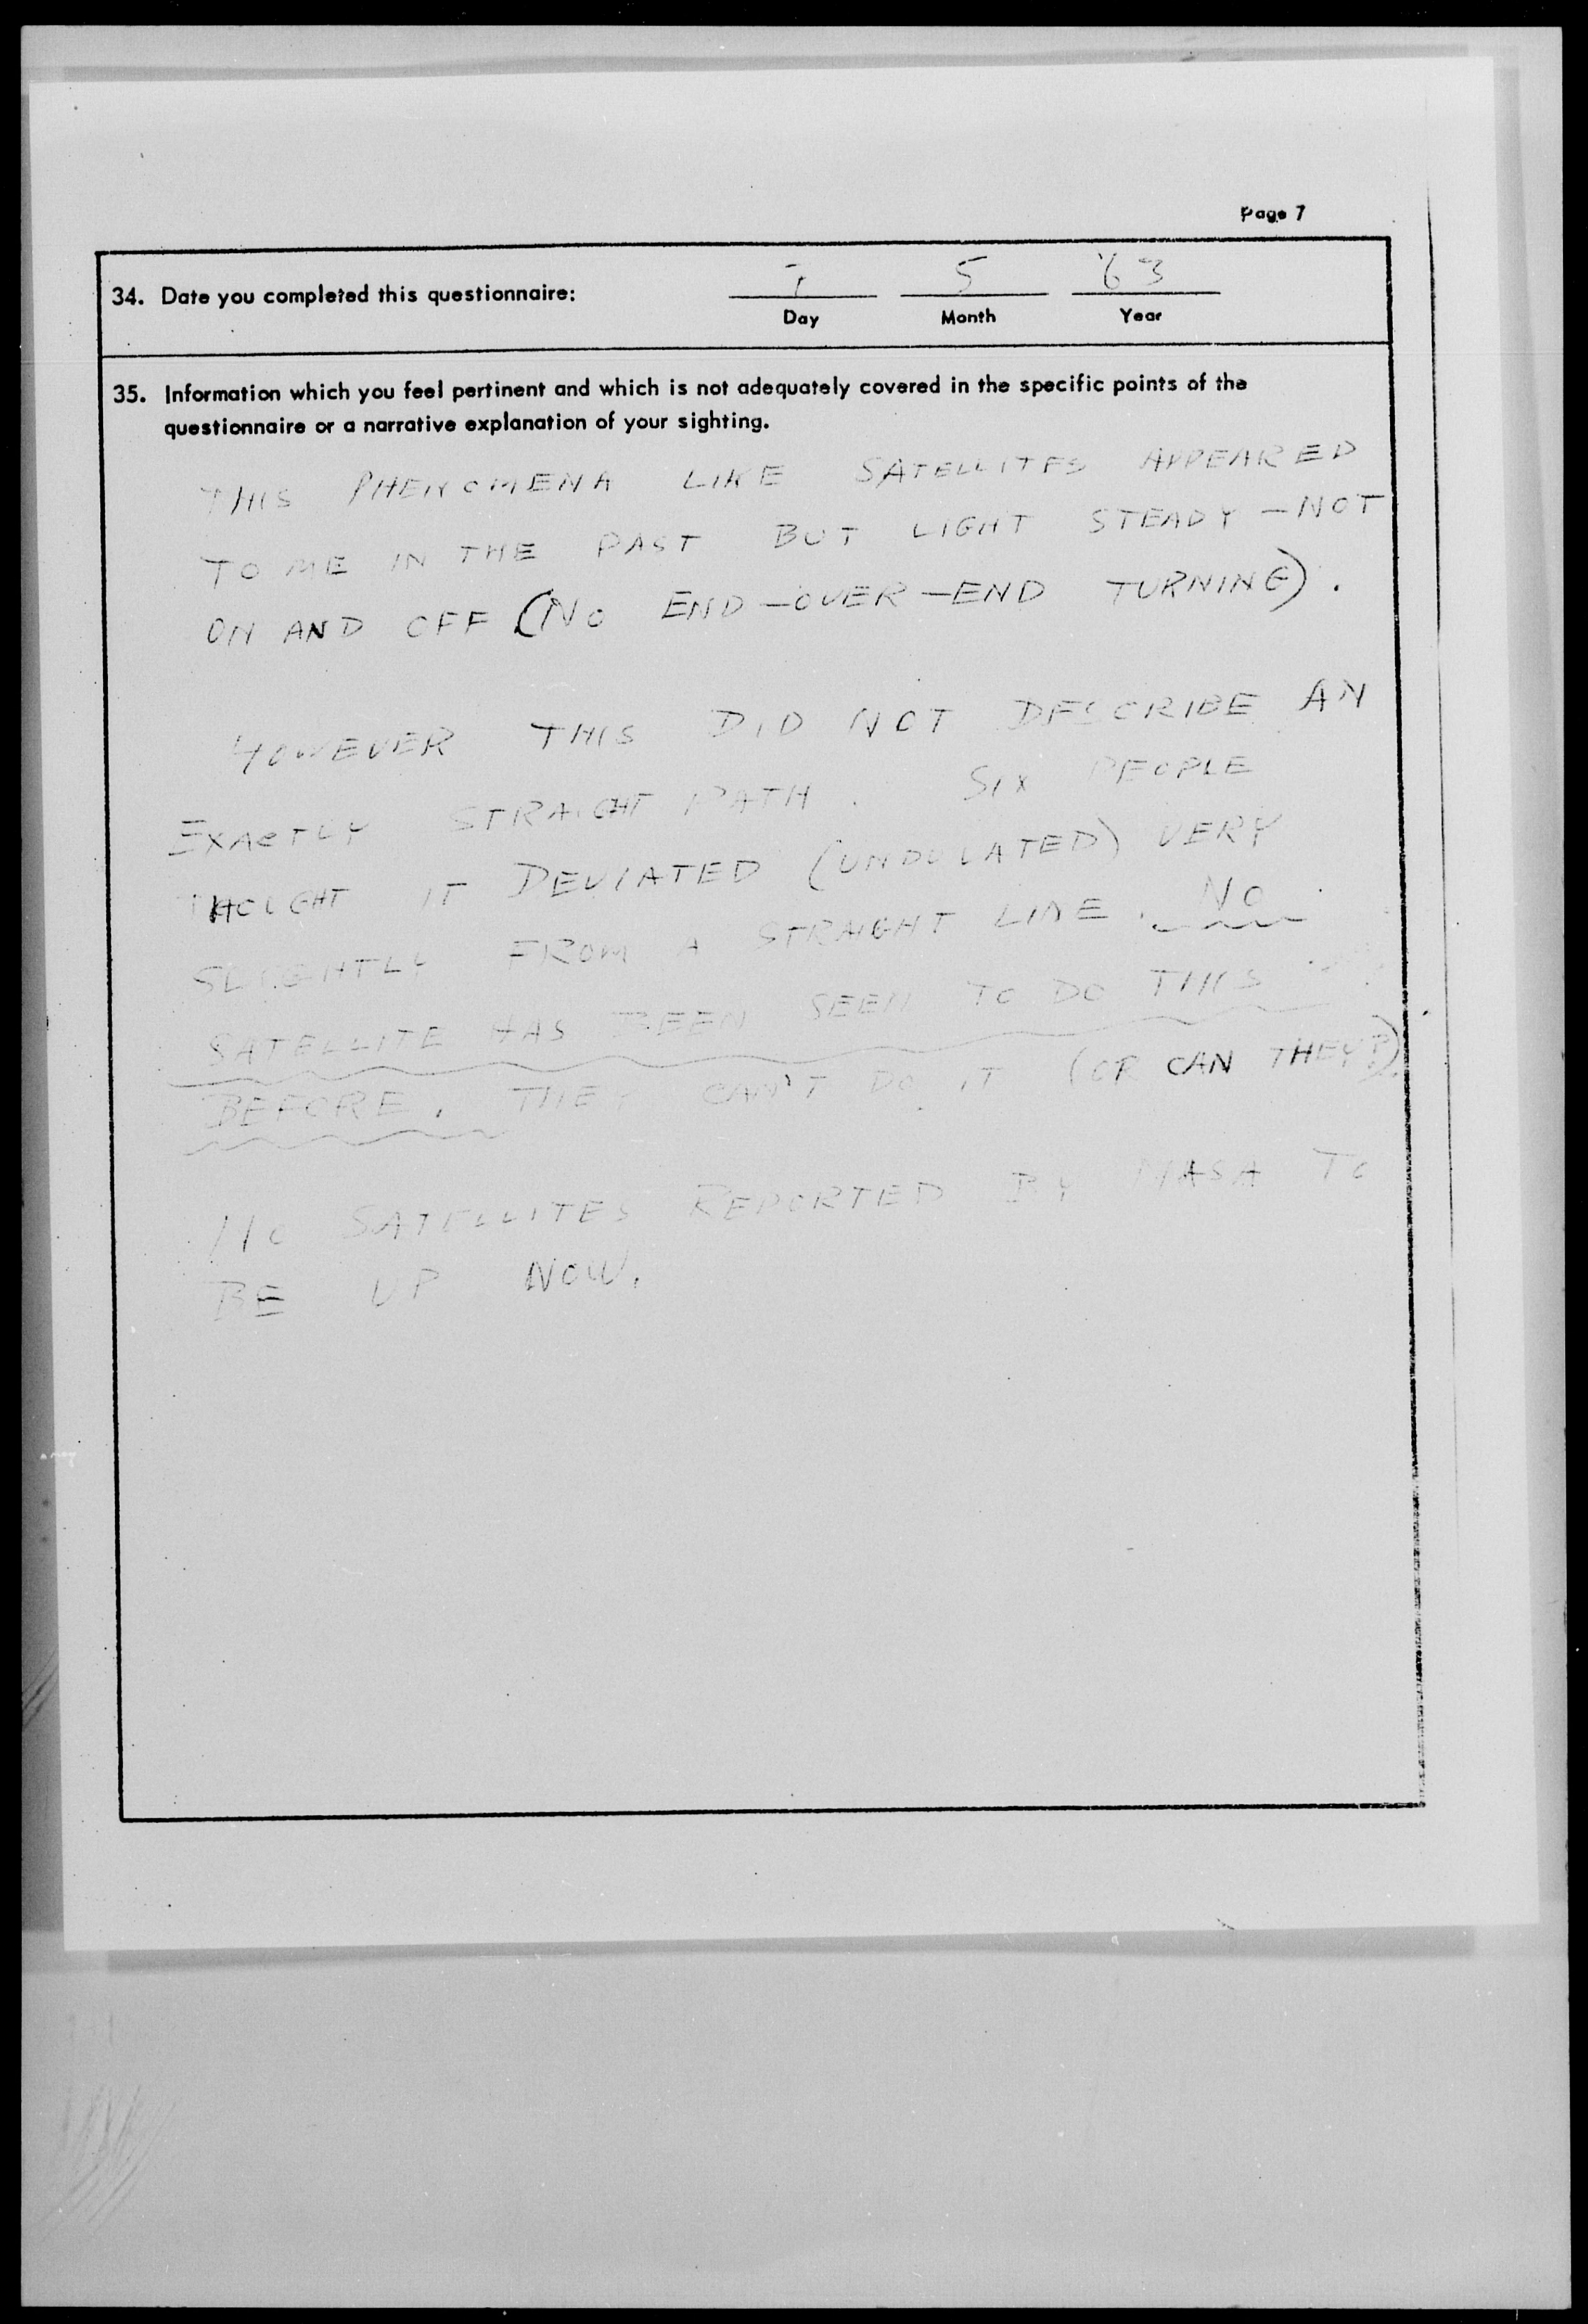 Page 7
34. Date you completed this questionnaire: 7 5 '63
Day Month Year
35. Information which you feel pertinent and which is not adequately covered in the specific points of the
questionnaire or a narrative explanation of your sighting.
THIS PHENOMENA LIKE SATELLITES APPEARED
TO ME IN THE PAST BUT LIGHT STEADY - NOT
ON AND OFF (NO END-OVER-END TURNING).
HOWEVER THIS DID NOT DESCRIBE AN
EXACTLY STRAIGHT PATH. SIX PEOPLE
THOUGHT IT DEVIATED (UNDULATED) VERY
SLIGHTLY FROM A STRAIGHT LINE. NO
SATELLITE HAS BEEN SEEN TO DO THIS
BEFORE. THEY CAN'T DO IT (OR CAN THEY?).
NO SATELLITES REPORTED BY NASA TO
BE UP NOW.